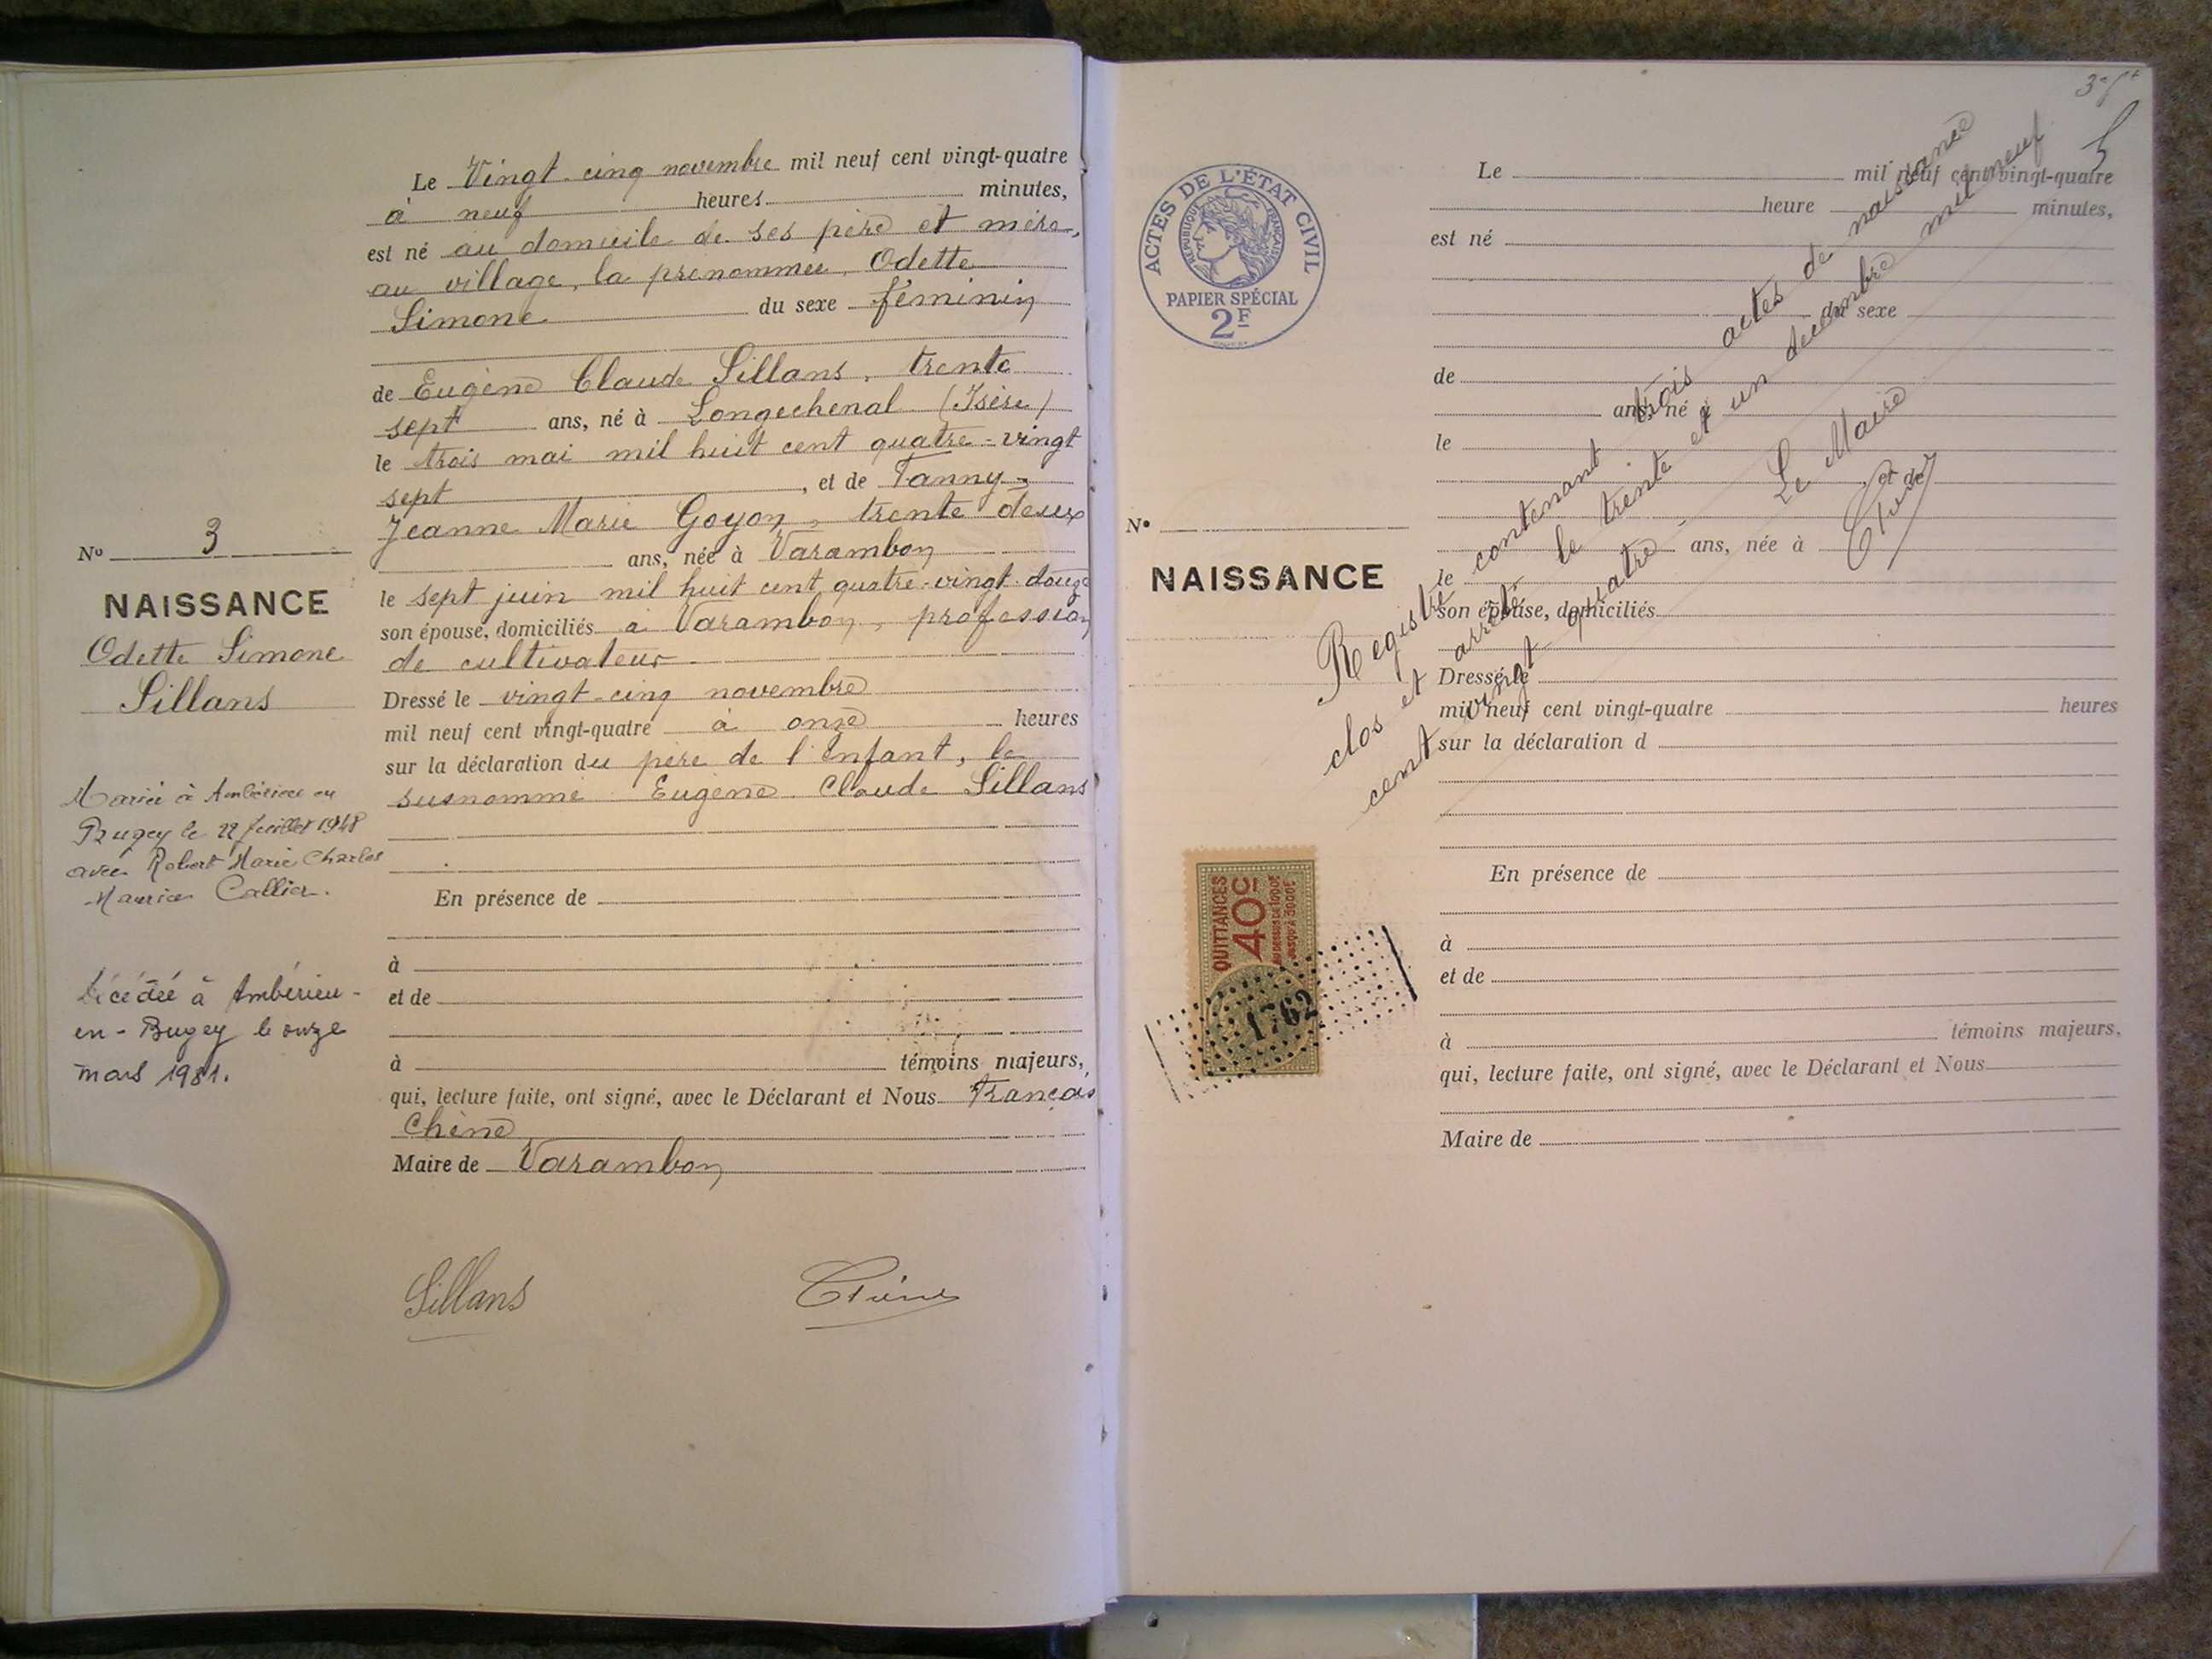 Le Vingt-cinq novembre mil neuf cent vingt-quatre
à neuf heures minutes,
est né au domicile de ses père et mère,
au village, la prénommée, Odette
Simone du sexe féminin
de Eugène Claude Sillans, trente
sept ans, né à Longechenal (Isère)
le trois mai mil huit cent quatre-vingt
sept, et de Fanny-
Jeanne Marie Goyon, trente deux
ans, née à Varambon
le sept juin mil huit cent quatre-vingt-douze
son épouse, domiciliés à Varambon, profession
de cultivateur
Dressé le vingt-cinq novembre
mil neuf cent vingt-quatre à onze heures
sur la déclaration du père de l'Enfant, le
susnommé Eugène Claude Sillans
En présence de
à
et de
à témoins majeurs,
qui, lecture faite, ont signé, avec le Déclarant et Nous François
Chêne
Maire de Varambon
Sillans Chêne
No 3
NAISSANCE
Odette Simone
Sillans
Mariée à Ambérieu en
Bugey le 22 Juillet 1948
avec Robert Marie Charles
Maurice Callier.
Décédée à Ambérieu-
en-Bugey le onze
mars 1981.
5
ACTES DE L'ÉTAT CIVIL
RÉPUBLIQUE FRANÇAISE
PAPIER SPÉCIAL
2F
Le mil neuf cent vingt-quatre
heure minutes,
est né
du sexe
de
ans, né à
le
, et de
ans, née à
le
son épouse, domiciliés
Dressé le
mil neuf cent vingt-quatre heures
sur la déclaration d
En présence de
à
et de
à témoins majeurs,
qui, lecture faite, ont signé, avec le Déclarant et Nous
Maire de
No
NAISSANCE
Registre contenant trois actes de naissance
clos et arrêté le trente et un décembre mil neuf
cent vingt quatre.
Le Maire
Chêne
QUITTANCES
40C
AU DESSUS DE 1000F
JUSQU'À 3000F
1762